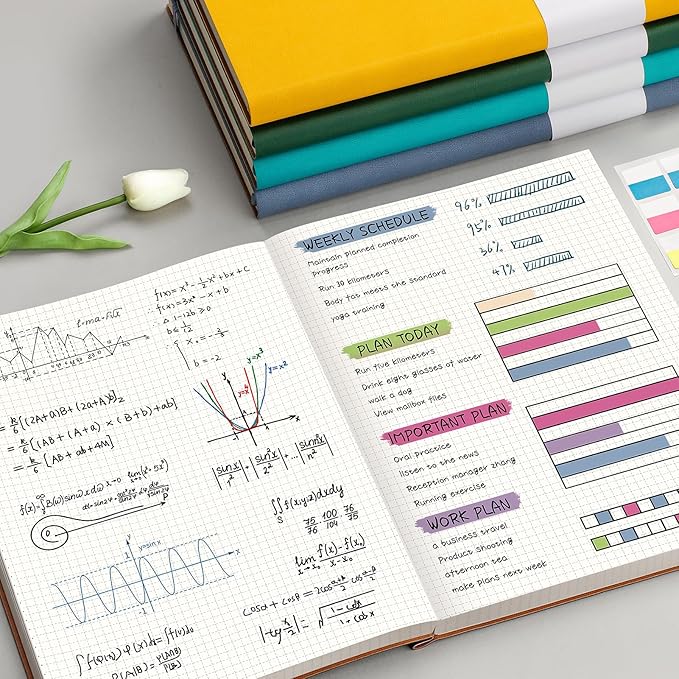 f(x)=x³-½x²+bx+c
∴f(x)=3x²-x+b
∴△1-12b≥0
b≤1/12
b=-2
y=x³
y=x²
= k/6 [(2A+a)B+(2a+A)b]
= k/6 [(AB+(A+a)×(B+b)+ab]
= k/6 [AB+ab+4M]
|sinx/1²|+|sin²x/2²|+...|sinnⁿx/n²|
∬f(x,y,z)dxdy
S
75/76 100/104 76/75
lim x→x₀ f(x)-f(x₀)/x-x₀
y=sinx
cosα+cosβ=2cos
|tg x/2|=√1-cosx/1+cosx
∫f(φ(x))φ'(x)dx=∫f(v)dv
P(A|B)=P(A∩B)/P(B)
WEEKLY SCHEDULE
Maintain planned completion
progress
Run 10 kilometers
Body fat meets the standard
yoga training
96%
95%
36%
47%
PLAN TODAY
Run five kilometers
Drink eight glasses of water
walk a dog
View mailbox files
IMPORTANT PLAN
Oral practice
listen to the news
Reception manager zhang
Running exercise
WORK PLAN
a business travel
Product shooting
afternoon tea
make plans next week